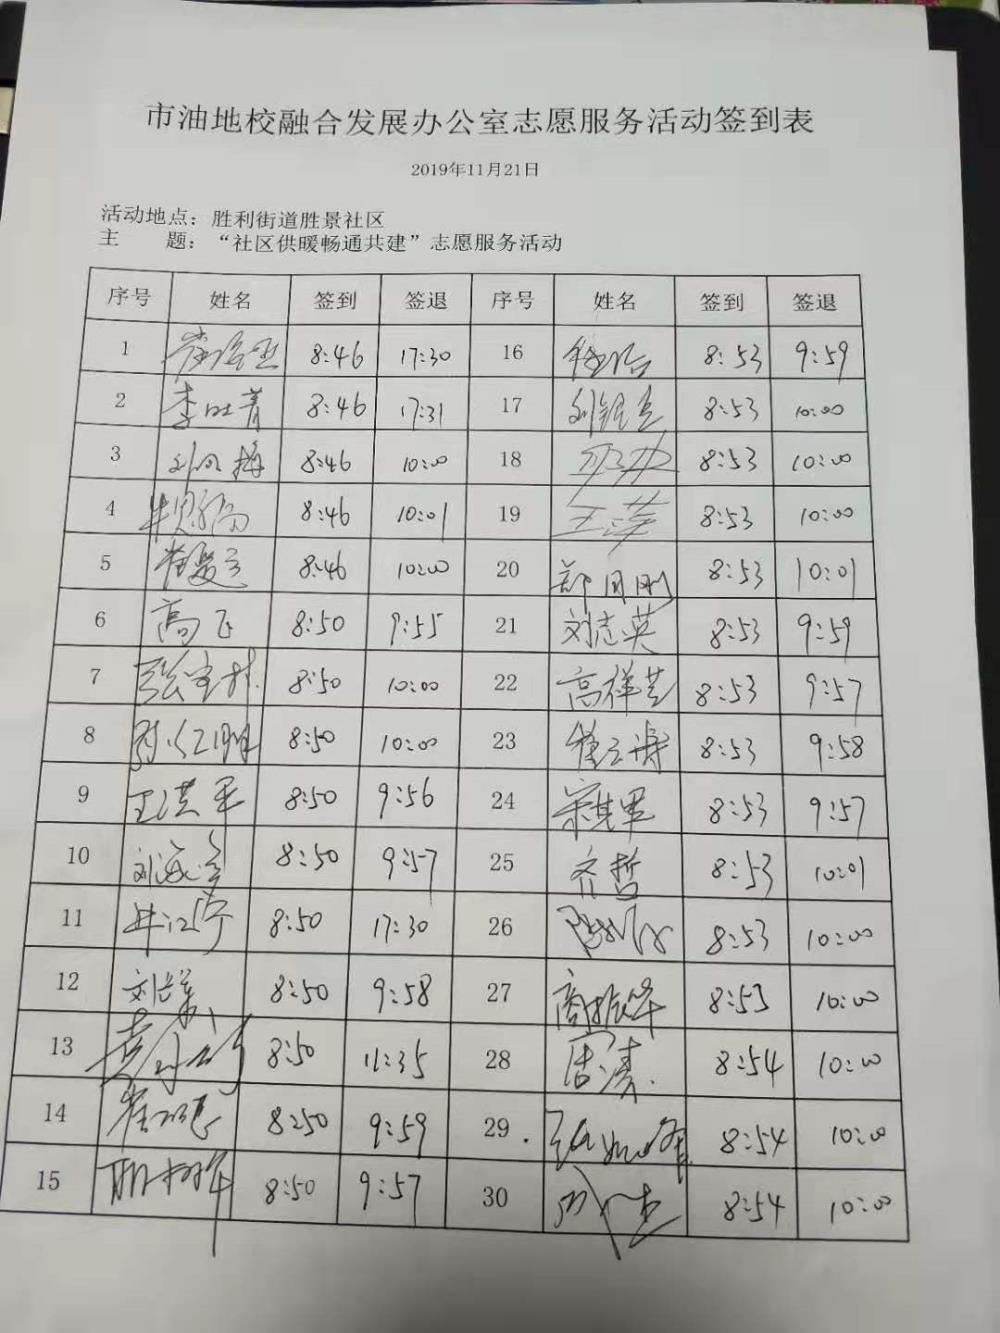 市油地校融合发展办公室志愿服务活动签到表
2019年11月21日
活动地点：胜利街道胜景社区
主 题：“社区供暖畅通共建”志愿服务活动
序号 姓名 签到 签退 序号 姓名 签到 签退
1 8:46 17:30 16 8:53 9:59
2 8:46 17:31 17 8:53 10:00
3 刘凤梅 8:46 10:00 18 8:53 10:00
4 8:46 10:01 19 王萍 8:53 10:00
5 8:46 10:00 20 郑同刚 8:53 10:01
6 高飞 8:50 9:55 21 刘志英 8:53 9:59
7 8:50 10:00 22 高祥芝 8:53 9:57
8 8:50 10:00 23 8:53 9:58
9 王洪军 8:50 9:56 24 8:53 9:57
10 8:50 9:57 25 齐哲 8:53 10:01
11 8:50 17:30 26 8:53 10:00
12 8:50 9:58 27 8:53 10:00
13 8:50 11:35 28 周涛 8:54 10:00
14 8:50 9:59 29 8:54 10:00
15 8:50 9:57 30 8:54 10:00